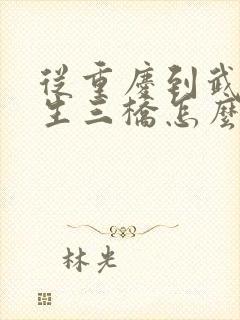 從重慶到武
生三橋怎麼
林光